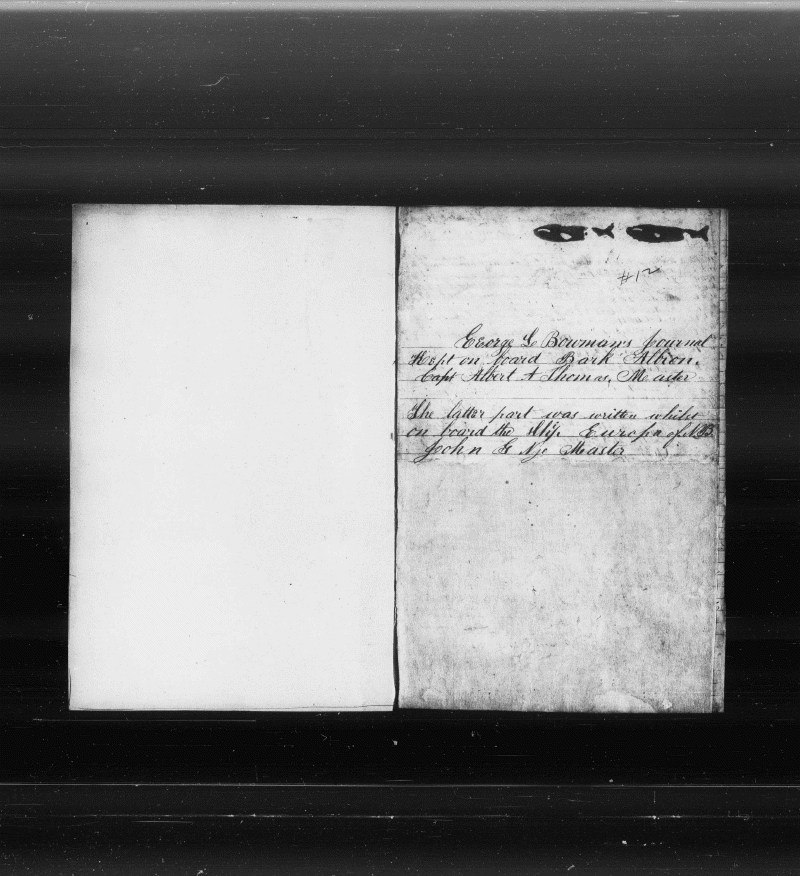 #12
George L Bowman's Journal
Kept on board Bark Albion
Capt Albert A Thomas, Master
The latter part was written whilst
on board the Ship Europa of NB
John G Nye Master